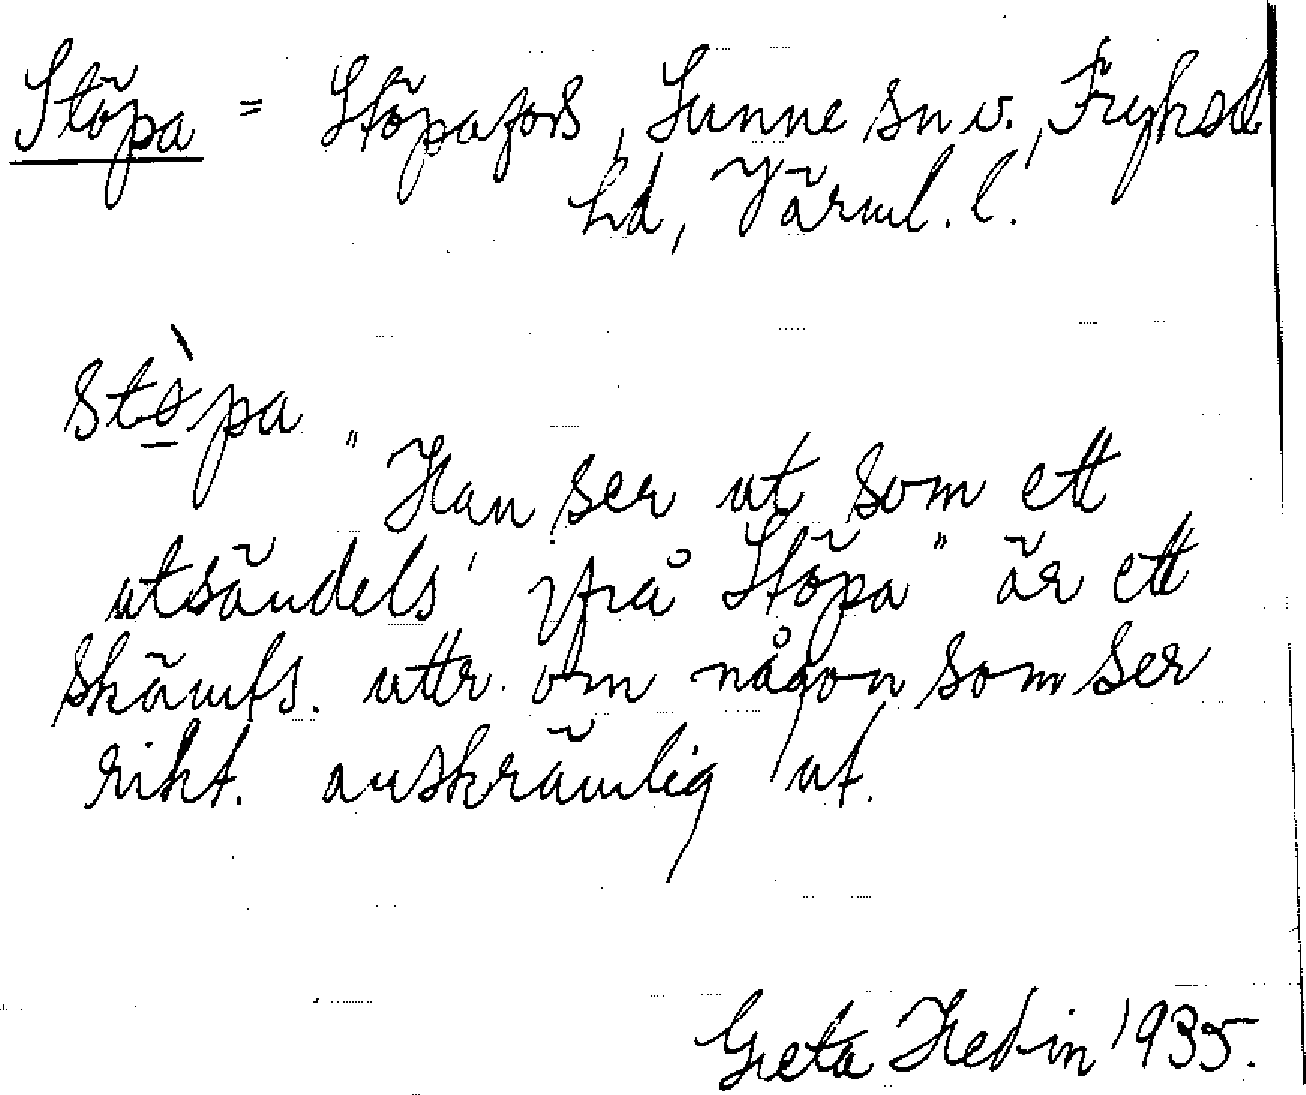 Stöpa = Stöpafors, Sunne sn v., Fryksd.
hd, Värml. l.
stö̀pa
"Han ser ut som ett
utsändels' ifrå Stöpa" är ett
skämts. uttr. om någon som ser
rikt. auskrämlig ut.
Greta Hedin 1935.